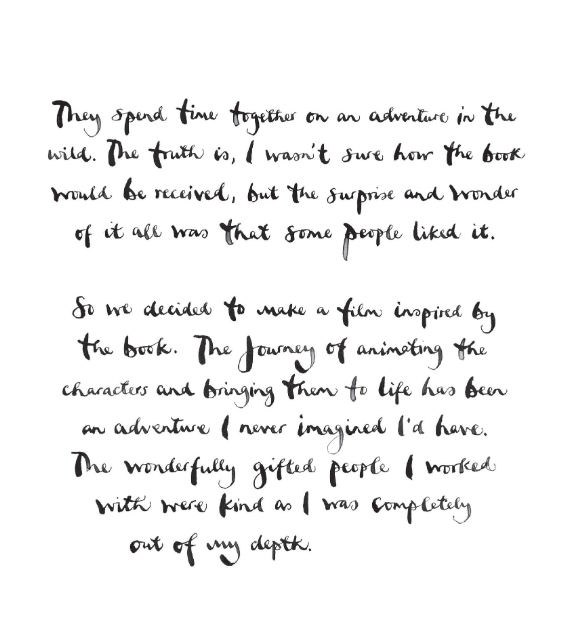 They spend time together on an adventure in the
wild. The truth is, I wasn't sure how the book
would be received, but the surprise and wonder
of it all was that some people liked it.
So we decided to make a film inspired by
the book. The Journey of animating the
characters and bringing them to life has been
an adventure I never imagined I'd have.
The wonderfully gifted people I worked
with were kind as I was completely
out of my depth.